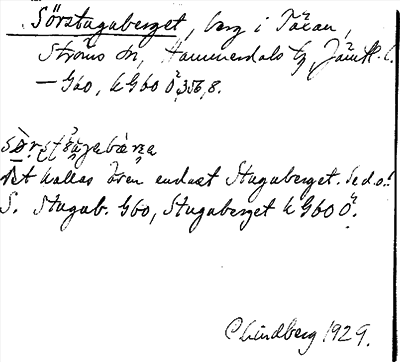 Sörstugaberget, berg i Täxan,
Ströms sn, Hammerdals tg, Jämtl. l.
— Gbo, kGbo Ö,356,8.
Det kallas även endast Stugaberget. Se d.o.!
S. Stugub. Gbo, Stuguberget kGbo Ö.
C Lindberg 1929.